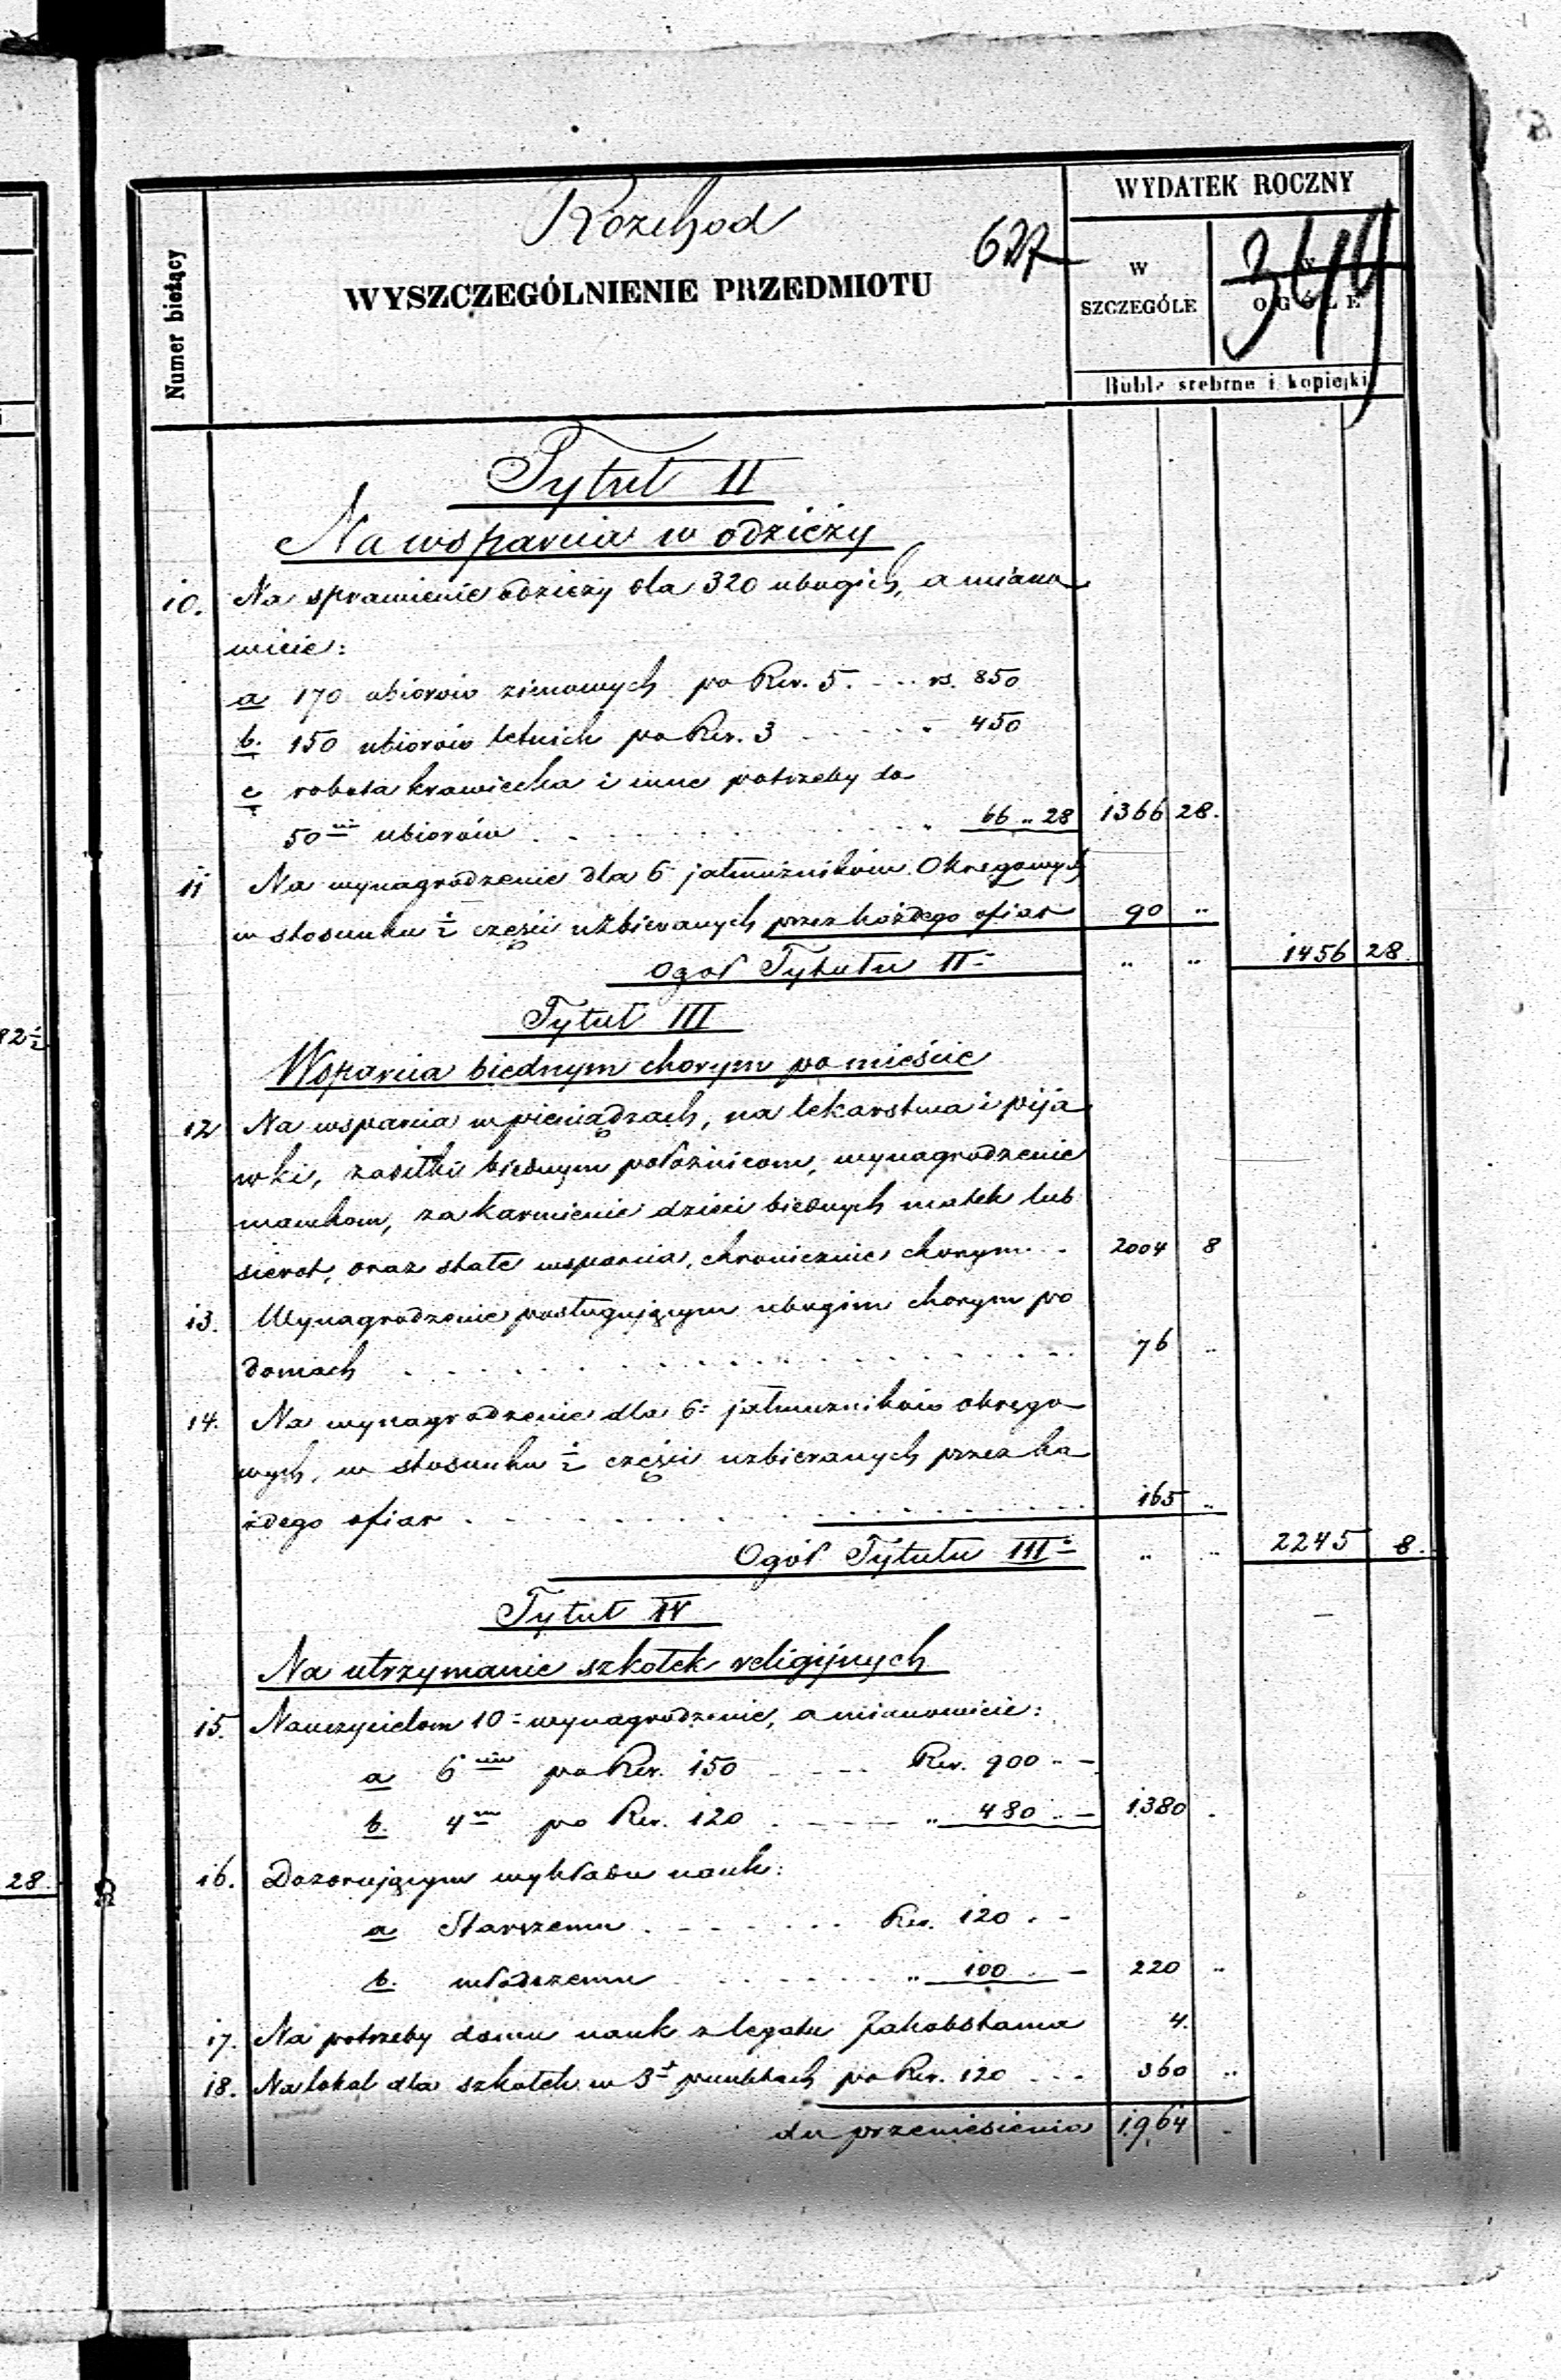 Rozchod
627
WYDATEK ROCZNY
Numer bieżący
WYSZCZEGÓLNIENIE PRZEDMIOTU
W SZCZEGÓLE
W OGÓLE
Ruble srebrne i kopiejki
Tytuł II
Na wsparcia w odzieży
10. Na sprawienie odzieży dla 320 ubogich, a miano
wicie:
a 170 ubiorów zimowych po Rsr. 5. - .. rs. 850
b. 150 ubiorów letnich po Rsr. 3 . . . . " 450
c robota krawiecka i inne potrzeby do
50 ubiorów . . . . . " 66 .. 28 1366 28.
11 Na wynagrodzenie dla 6 jałmużników Okręgowych
w stosunku ½ części uzbieranych przez każdego ofiar 90 ..
Ogół Tytułu II .. .. 1456 28.
Tytuł III
Wsparcia biednym chorym po mieście
12 Na wsparcia w pieniądzach, na lekarstwa i pija
wki, zasiłki biednym położnicom, wynagrodzenie
mamkom, za karmienie dzieci biednych matek lub
sierot, oraz stałe wsparcia, chronicznie chorym . . 2004 8
13. Wynagrodzenie posługującym ubogim chorym po
domach . . . . . 76 ..
14. Na wynagrodzenie dla 6 jałmużników okręgo
wych, w stosunku ½ części uzbieranych przez ka
żdego ofiar . . . . . 165 ..
Ogół Tytułu III .. .. 2245 8.
Tytuł IV
Na utrzymanie szkółek religijnych
15. Nauczycielom 10 wynagrodzenie, a mianowicie:
a 6 po Rsr. 150 - - - Rsr. 900 .. -
b. 4 po Rsr. 120 . - - - " 480 .. - 1380 .
16. Dozorującym wykładu nauk:
a Starszemu . - - - . . Rsr. 120 . -
b. młodszemu . . . . . " 100 . - 220 ..
17. Na potrzeby domu nauk z legatu Jakobstama 4.
18. Na lokal dla szkółek w 3 punktach po Rsr. 120 . . . 360 ..
do przeniesienia 1964 .
82½
28.